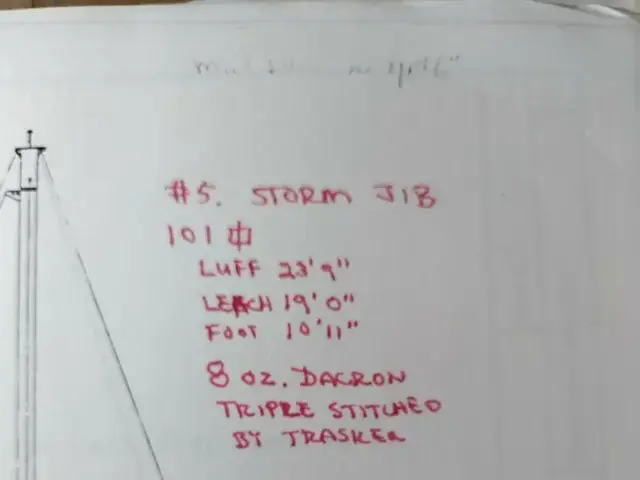 #5. STORM JIB
101 ⏍
LUFF 23'9"
LEACH 19'0"
FOOT 10'11"
8 OZ. DACRON
TRIPLE STITCHED
BY TRASKER